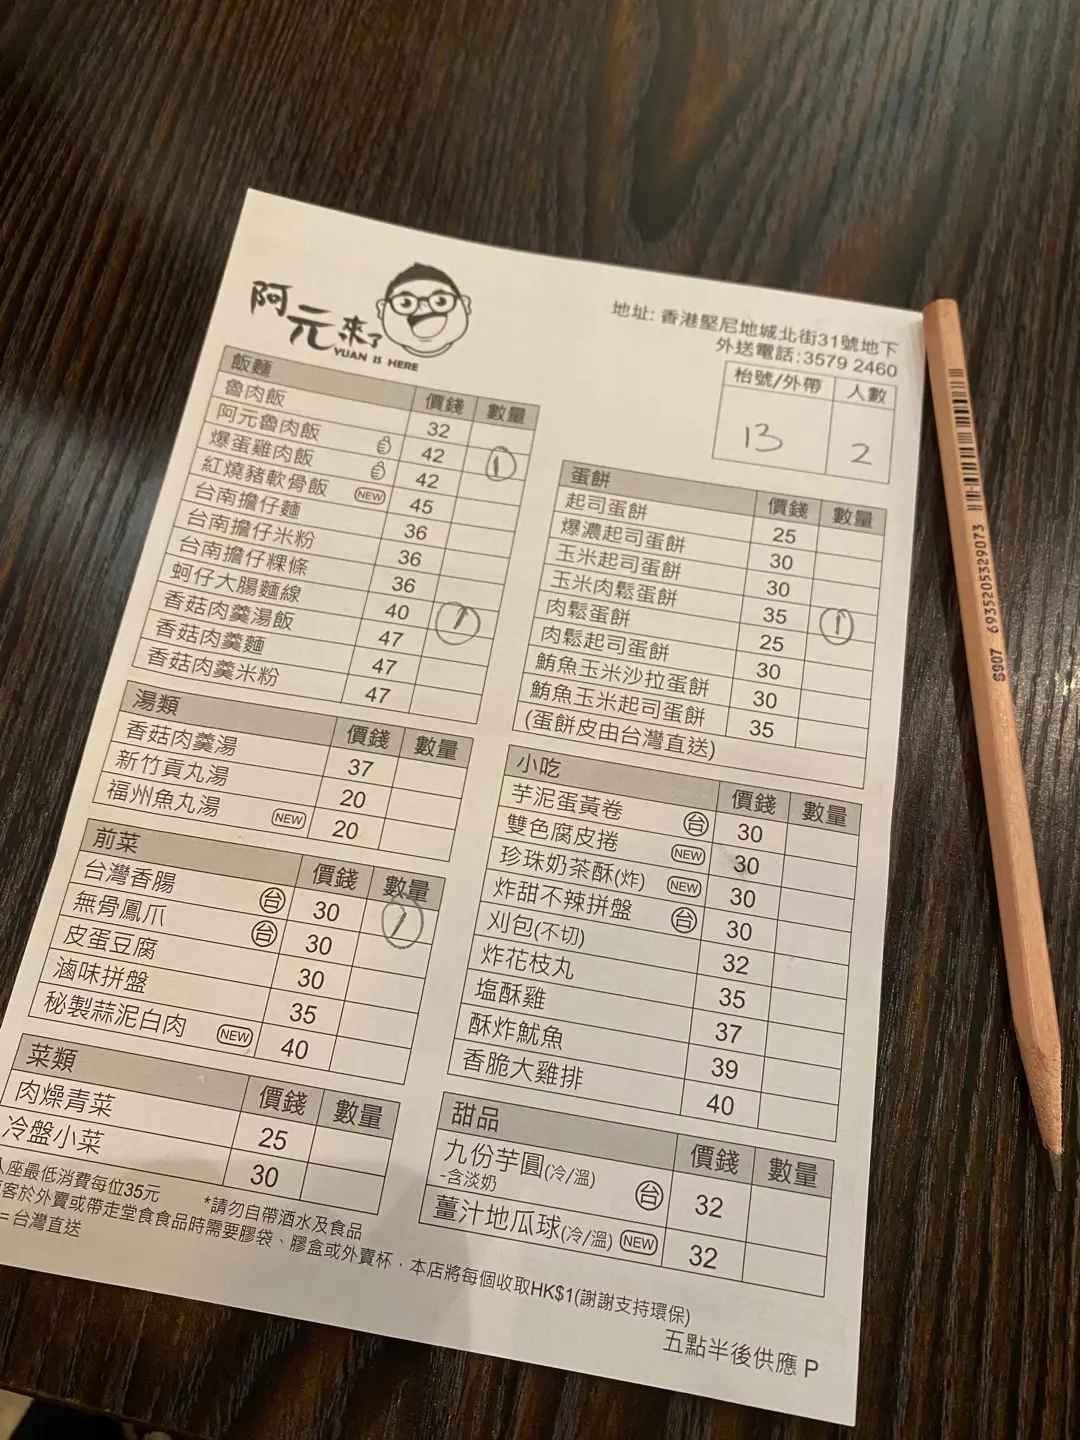 阿元來了
YUAN IS HERE
地址: 香港堅尼地城北街31號地下
外送電話:3579 2460
枱號/外帶 人數
13 2
飯麵 價錢 數量
魯肉飯 32
阿元魯肉飯 42 1
爆蛋雞肉飯 42
紅燒豬軟骨飯 NEW 45
台南擔仔麵 36
台南擔仔米粉 36
台南擔仔粿條 36
蚵仔大腸麵線 40 1
香菇肉羹湯飯 47
香菇肉羹麵 47
香菇肉羹米粉 47
湯類 價錢 數量
香菇肉羹湯 37
新竹貢丸湯 20
福州魚丸湯 NEW 20
前菜 價錢 數量
台灣香腸 台 30 1
無骨鳳爪 台 30
皮蛋豆腐 30
滷味拼盤 35
秘製蒜泥白肉 NEW 40
菜類 價錢 數量
肉燥青菜 25
冷盤小菜 30
蛋餅 價錢 數量
起司蛋餅 25
爆濃起司蛋餅 30
玉米起司蛋餅 30
玉米肉鬆蛋餅 35 1
肉鬆蛋餅 25
肉鬆起司蛋餅 30
鮪魚玉米沙拉蛋餅 30
鮪魚玉米起司蛋餅 35
(蛋餅皮由台灣直送)
小吃 價錢 數量
芋泥蛋黃卷 台 30
雙色腐皮捲 NEW 30
珍珠奶茶酥(炸) NEW 30
炸甜不辣拼盤 台 30
刈包(不切) 32
炸花枝丸 35
塩酥雞 37
酥炸魷魚 39
香脆大雞排 40
甜品 價錢 數量
九份芋圓(冷/溫) 台 32
-含淡奶
薑汁地瓜球(冷/溫) NEW 32
座最低消費每位35元 *請勿自帶酒水及食品
客於外賣或帶走堂食食品時需要膠袋、膠盒或外賣杯，本店將每個收取HK$1(謝謝支持環保)
=台灣直送
五點半後供應 P
S907 6935205329073